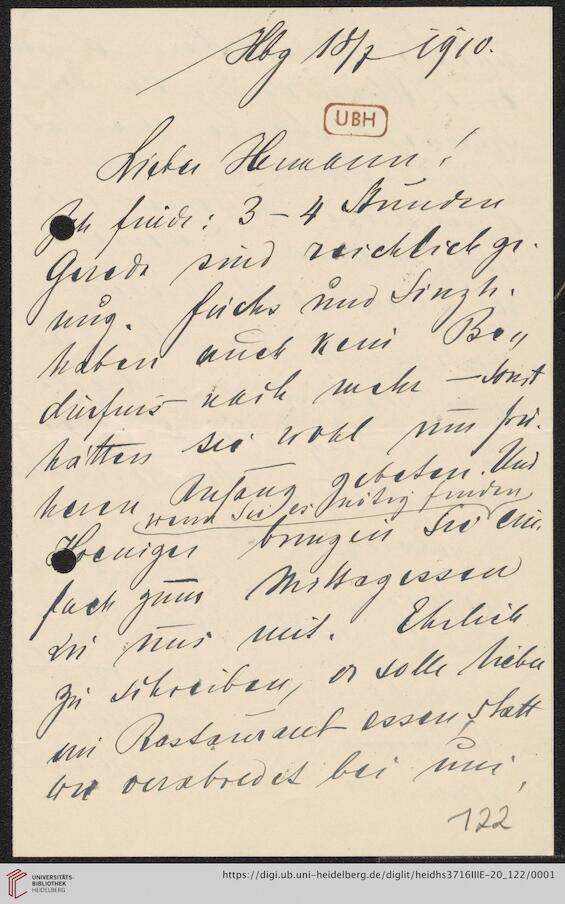 Hbg 18/7 1910.
UBH
Lieber Hermann!
Ich finde: 3 – 4 Stunden
Gerede sind reichlich ge-
nug. Fuchs und Singh.
haben auch kein Be„
dürfnis nach mehr – sonst
hätten sie wohl um frü-
heren Anfang gebeten. Und
wenn Sie es nötig finden
Hoeniger bringen Sie ein-
fach zum Mittagessen
zu uns mit. Ehrlich
zu schreiben, er solle lieber
im Restaurant essen, statt
wie verabredet bei uns,
122
UNIVERSITÄTS-
BIBLIOTHEK
HEIDELBERG
https://digi.ub.uni-heidelberg.de/diglit/heidhs3716IIIE-20_122/0001